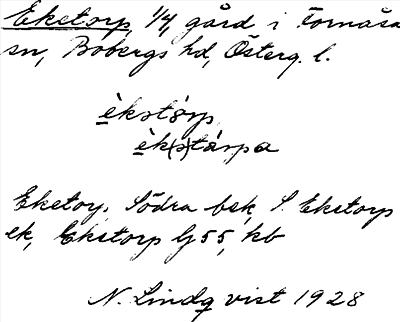 Eketorp, 1/4, gård i Fornåsa
sn, Bobergs hd, Österg. l.
èkstórp
èk(s)tárpa
Eketorp, Södra bsk, S. Ekstorp
ek, Ekstorp lj 55, kb
N. Lindqvist 1928